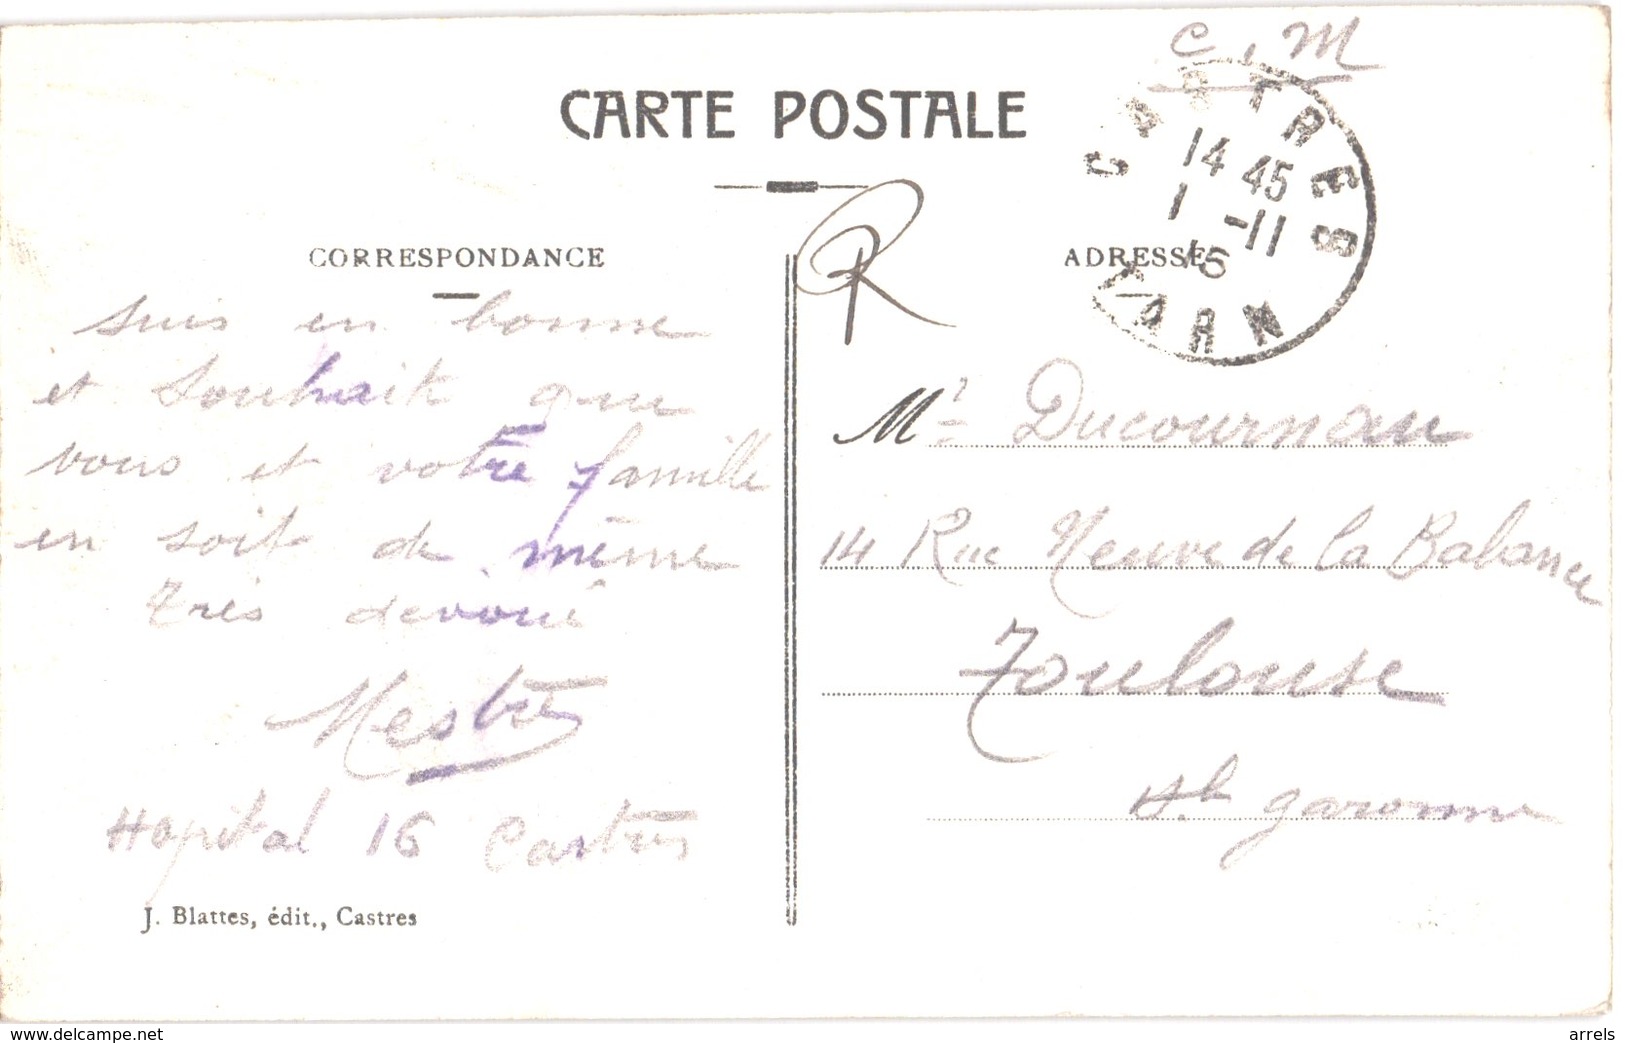 C. M
CARTE POSTALE
CASTRES
14 45
1 -11
15
TARN
R
CORRESPONDANCE
suis en bonne
et souhaite que
vous et votre famille
en soit de même
très dévoué
Mestre
Hopital 16 Castres
J. Blattes, édit., Castres
ADRESSE
Mr Ducournau
14 Rue Neuve de la Balance
Toulouse
Ht. garonne
www.delcampe.net
arrels